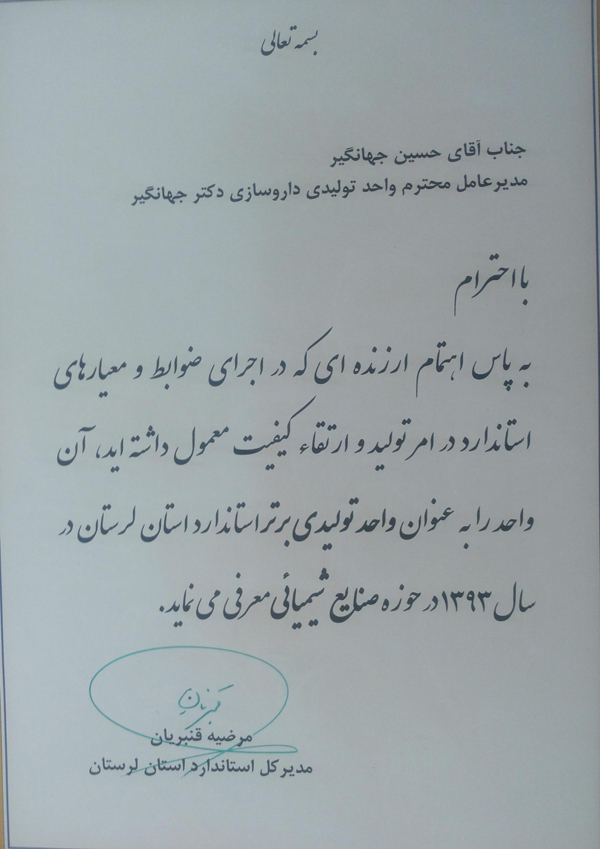 بسمه تعالی
جناب آقای حسین جهانگیر
مدیرعامل محترم واحد تولیدی داروسازی دکتر جهانگیر
با احترام
به پاس اهتمام ارزنده ای که در اجرای ضوابط و معیارهای
استاندارد در امر تولید و ارتقاء کیفیت معمول داشته اید، آن
واحد را به عنوان واحد تولیدی برتر استاندارد استان لرستان در
سال ۱۳۹۳ در حوزه صنایع شیمیائی معرفی می نماید.
مرضیه قنبریان
مدیرکل استاندارد استان لرستان